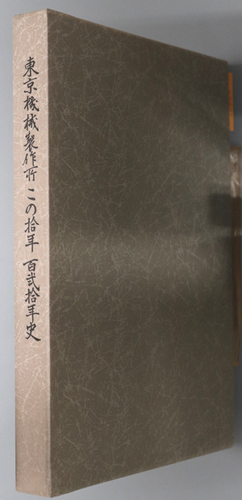 東京機械製作所 この拾年 百弐拾年史